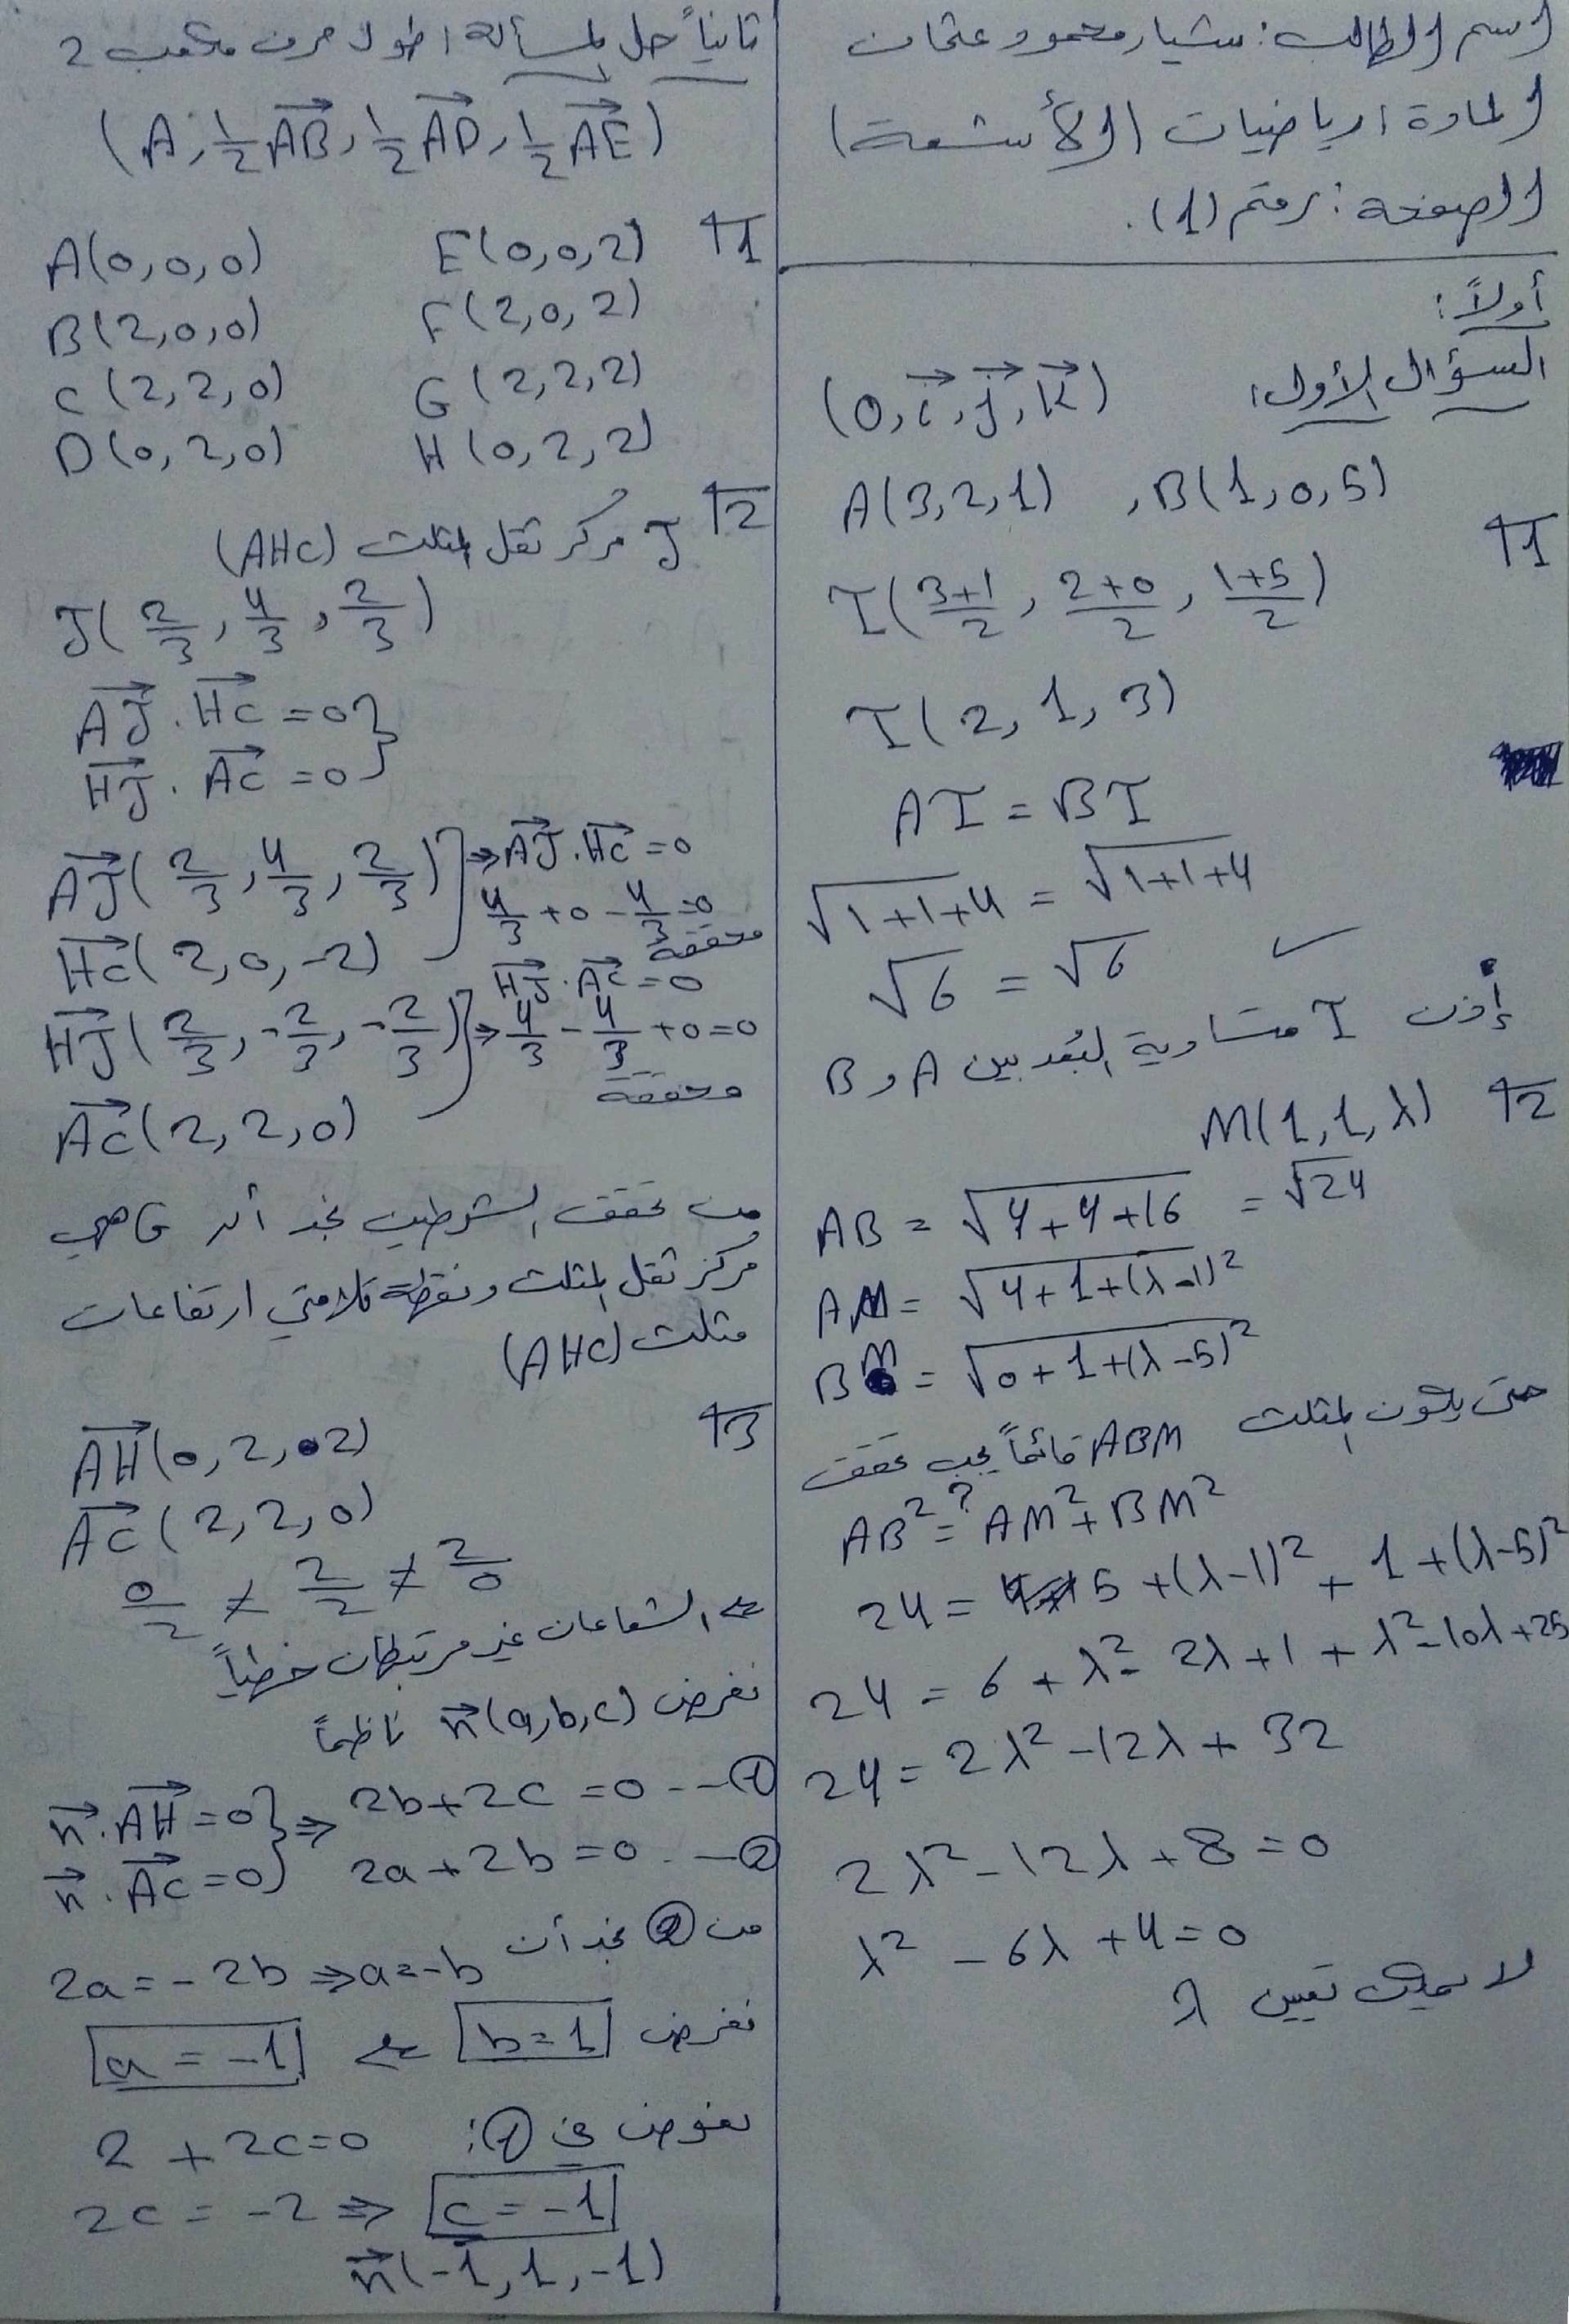 اسم الطالب: سشيار محمود عثمان
المادة: رياضيات (الأشعة)
الصفحة: رقم (1).
أولاً:
السؤال الأول: (O, i, j, k)
A(3,2,1) , B(1,0,5)
1 I(3+1/2, 2+0/2, 1+5/2)
I(2,1,3)
AI = BI
√1+1+4 = √1+1+4
√6 = √6 ✓
إذن I متساوية البُعد بين A و B
2 M(1,1,λ)
AB = √4+4+16 = √24
AM = √4+1+(λ-1)²
BM = √0+1+(λ-5)²
حتى يكون المثلث ABM قائماً يجب تحقق
AB² =? AM² + BM²
24 = 5 + (λ-1)² + 1 + (λ-5)²
24 = 6 + λ² - 2λ + 1 + λ² - 10λ + 25
24 = 2λ² - 12λ + 32
2λ² - 12λ + 8 = 0
λ² - 6λ + 4 = 0
لا يمكن تعيين λ
ثانياً حل المسألة: طول حرف مكعب 2
(A, 1/2 AB, 1/2 AD, 1/2 AE)
1 A(0,0,0) E(0,0,2)
B(2,0,0) F(2,0,2)
C(2,2,0) G(2,2,2)
D(0,2,0) H(0,2,2)
2 J مركز ثقل المثلث (AHC)
J(2/3, 4/3, 2/3)
AJ . HC = 0
HJ . AC = 0
AJ(2/3, 4/3, 2/3) ⇒ AJ . HC = 0
4/3 + 0 - 4/3 = 0
محققة
HC(2,0,-2)
HJ . AC = 0
HJ(2/3, -2/3, -2/3) ⇒ 4/3 - 4/3 + 0 = 0
محققة
AC(2,2,0)
من تحقق الشرطين نجد أن G هي
مركز ثقل المثلث ونقطة تلاقي ارتفاعات
مثلث (AHC)
3 AH(0,2,2)
AC(2,2,0)
0/2 ≠ 2/2 ≠ 2/0
⇐ الشعاعان غير مرتبطان خطياً
نفرض n(a,b,c) ناظماً
n . AH = 0 ⇒ 2b+2c = 0 --①
n . AC = 0 2a+2b = 0 --②
من ② نجد أن
2a = -2b ⇒ a = -b
نفرض b=1 ⇐ a = -1
نعوض في ①:
2 + 2c = 0
2c = -2 ⇒ c = -1
n(-1,1,-1)